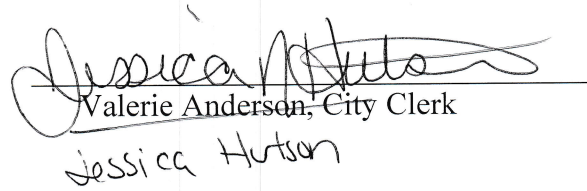 Jessica N Hutson
Valerie Anderson, City Clerk
Jessica Hutson